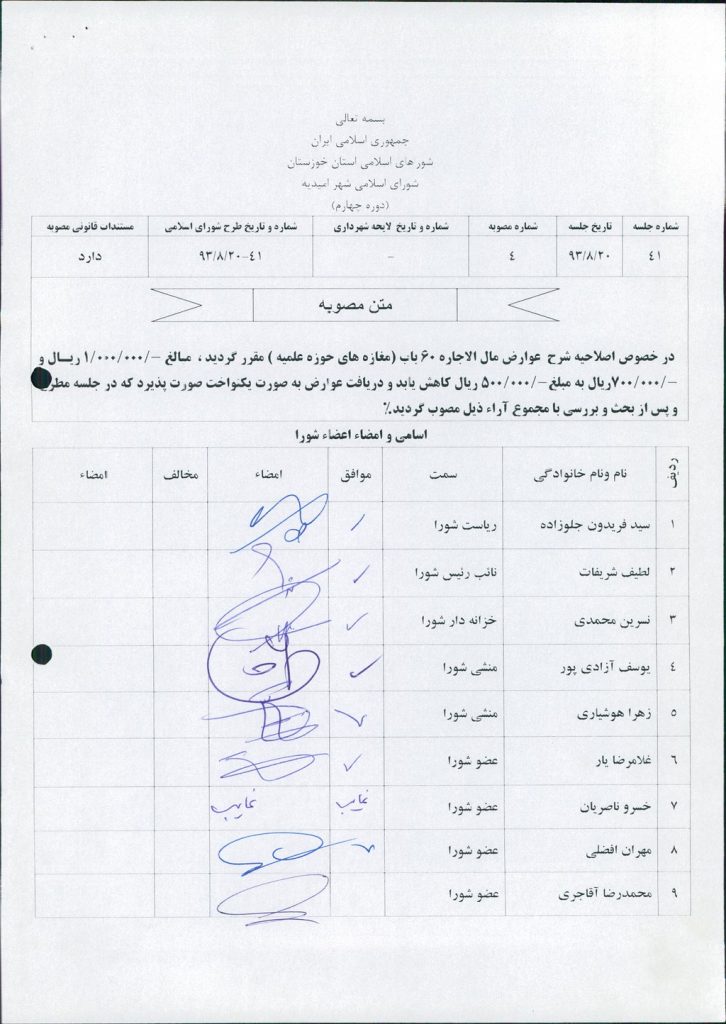 بسمه تعالی
جمهوری اسلامی ایران
شور های اسلامی استان خوزستان
شورای اسلامی شهر امیدیه
(دوره چهارم)
شماره جلسه تاریخ جلسه شماره مصوبه شماره و تاریخ لایحه شهرداری شماره و تاریخ طرح شورای اسلامی مستندات قانونی مصوبه
٤١ ۹۳/۸/۲۰ ٤ - ٤١-۹۳/۸/۲۰ دارد
متن مصوبه
در خصوص اصلاحیه شرح عوارض مال الاجاره ۶۰ باب (مغازه های حوزه علمیه ) مقرر گردید ، مبالغ -/۱/۰۰۰/۰۰۰ ریال و
-/۷۰۰/۰۰۰ریال به مبلغ -/۵۰۰/۰۰۰ ریال کاهش یابد و دریافت عوارض به صورت یکنواخت صورت پذیرد که در جلسه مطرح
و پس از بحث و بررسی با مجموع آراء ذیل مصوب گردید.٪
اسامی و امضاء اعضاء شورا
ردیف نام ونام خانوادگی سمت موافق امضاء مخالف امضاء
۱ سید فریدون جلوزاده ریاست شورا
۲ لطیف شریفات نائب رئیس شورا
۳ نسرین محمدی خزانه دار شورا
٤ یوسف آزادی پور منشی شورا
۵ زهرا هوشیاری منشی شورا
٦ غلامرضا یار عضو شورا
۷ خسرو ناصریان عضو شورا غایب غایب
۸ مهران افضلی عضو شورا
۹ محمدرضا آقاجری عضو شورا